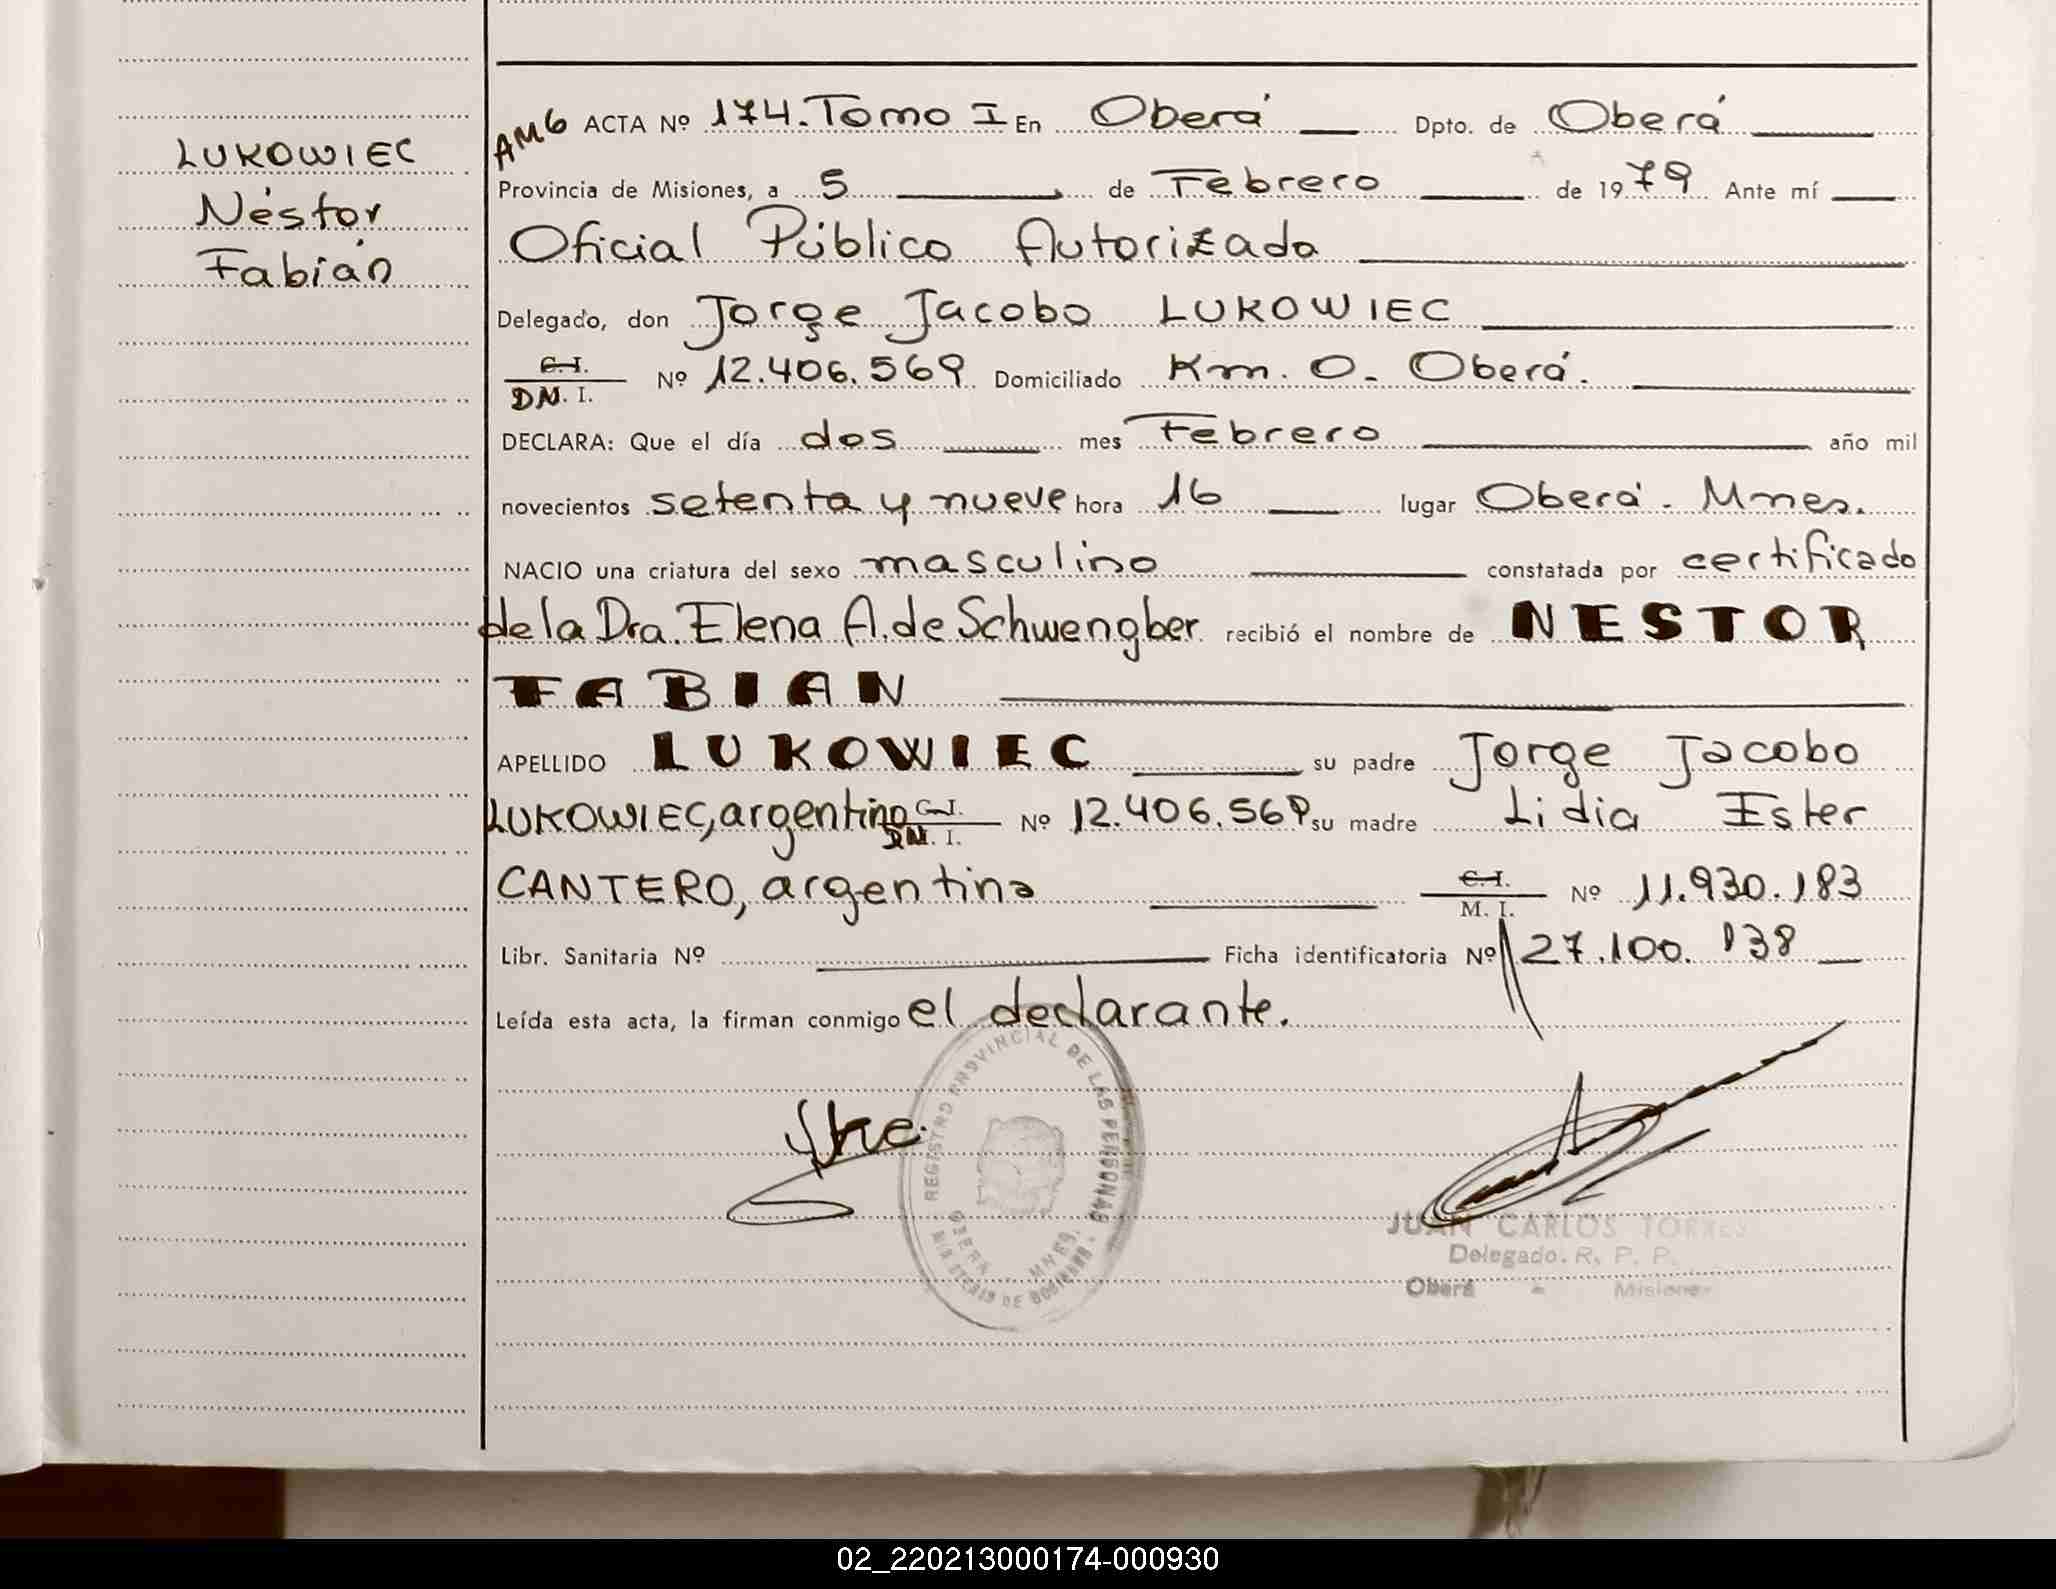 LUKOWIEC
Néstor
Fabián
AM6 ACTA Nº 174. Tomo I En Oberá Dpto. de Oberá
Provincia de Misiones, a 5 de Febrero de 1979 Ante mí
Oficial Público Autorizado
Delegado, don Jorge Jacobo LUKOWIEC
C.I.
DN. I. Nº 12.406.569 Domiciliado Km. 0. Oberá.
DECLARA: Que el día dos mes Febrero año mil
novecientos setenta y nueve hora 16 lugar Oberá. Mnes.
NACIO una criatura del sexo masculino constatada por certificado
de la Dra. Elena A. de Schwengber recibió el nombre de NESTOR
FABIAN
APELLIDO LUKOWIEC su padre Jorge Jacobo
LUKOWIEC, argentino C.I. DN. I. Nº 12.406.569 su madre Lidia Ester
CANTERO, argentina C.I. M. I. Nº 11.930.183
Libr. Sanitaria Nº Ficha identificatoria Nº 27.100.138
Leída esta acta, la firman conmigo el declarante.
REGISTRO PROVINCIAL DE LAS PERSONAS
OBERA MNES.
MINISTERIO DE GOBIERNO
JUAN CARLOS TORRES
Delegado. R. P. P.
Oberá - Misiones
02_220213000174-000930